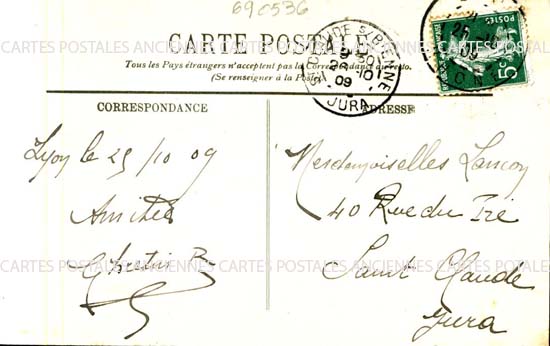 690536
CARTE POSTALE
Tous les Pays étrangers n'acceptent pas la Correspondance au recto.
(Se renseigner à la Poste)
CORRESPONDANCE
ADRESSE
Lyon le 25/10 09
Amitiés
Mesdemoiselles Lancon
40 Rue du Pré
Saint Claude
Jura
ST CLAUDE S/BIENNE
26 -10
09
JURA
25
09
POSTES
5c
CARTES POSTALES ANCIENNES CARTES POSTALES ANCIENNES CARTES POSTALES ANCIENNES
CARTES POSTALES ANCIENNES CARTES POSTALES ANCIENNES CARTES POSTALES ANCIENNES